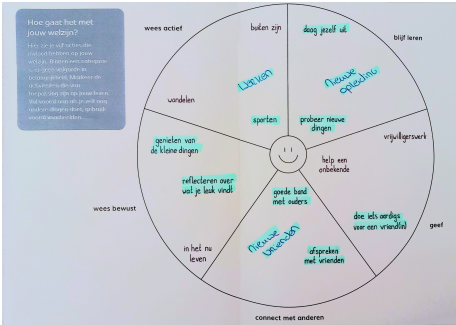 Hoe gaat het met
jouw welzijn?
wees actief
buiten zijn
daag jezelf uit
blijf leren
Werken
Nieuwe
opleiding
wandelen
sporten
probeer nieuwe
dingen
vrijwilligerswerk
genieten van
de kleine dingen
help een
onbekende
reflecteren over
wat je leuk vindt
goede band
met ouders
wees bewust
doe iets aardigs
voor een vriend(in)
geef
in het nu
leven
Nieuwe
vrienden
afspreken
met vrienden
connect met anderen